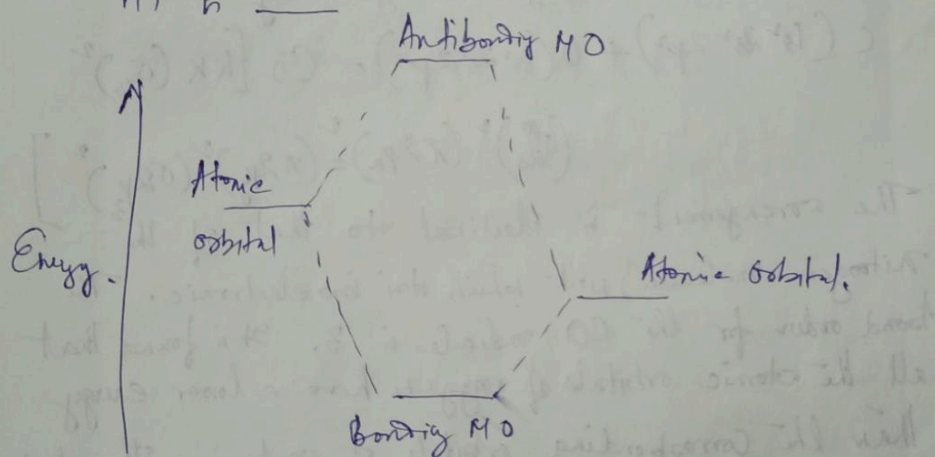 Antibonding MO
Atomic
orbital
Energy.
Atomic orbital.
Bonding MO